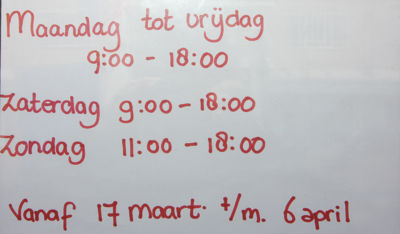 Maandag tot vrijdag
9:00 - 18:00
Zaterdag 9:00 - 18:00
Zondag 11:00 - 18:00
Vanaf 17 maart t/m. 6 april